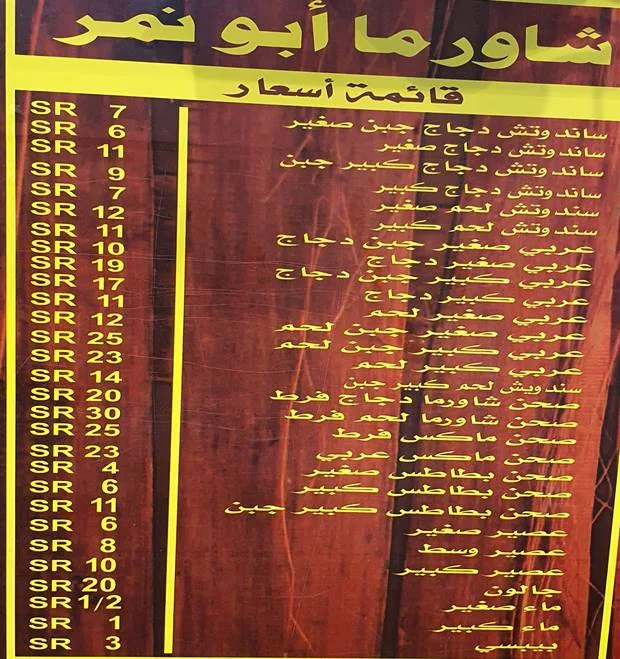 شاورما أبو نمر
قائمة أسعار
ساندوتش دجاج جبن صغير SR 7
ساندوتش دجاج صغير SR 6
ساندوتش دجاج كبير جبن SR 11
ساندوتش دجاج كبير SR 9
سندوتش لحم صغير SR 7
سندوتش لحم كبير SR 12
عربي صغير جبن دجاج SR 11
عربي صغير دجاج SR 10
عربي كبير جبن دجاج SR 19
عربي كبير دجاج SR 17
عربي صغير لحم SR 11
عربي صغير جبن لحم SR 12
عربي كبير جبن لحم SR 25
عربي كبير لحم SR 23
سندويش لحم كبير جبن SR 14
صحن شاورما دجاج فرط SR 20
صحن شاورما لحم فرط SR 30
صحن ماكس فرط SR 25
صحن ماكس عربي SR 23
صحن بطاطس صغير SR 4
صحن بطاطس كبير SR 6
صحن بطاطس كبير جبن SR 11
عصير صغير SR 6
عصير وسط SR 8
عصير كبير SR 10
جالون SR 20
ماء صغير SR 1/2
ماء كبير SR 1
بيبسي SR 3